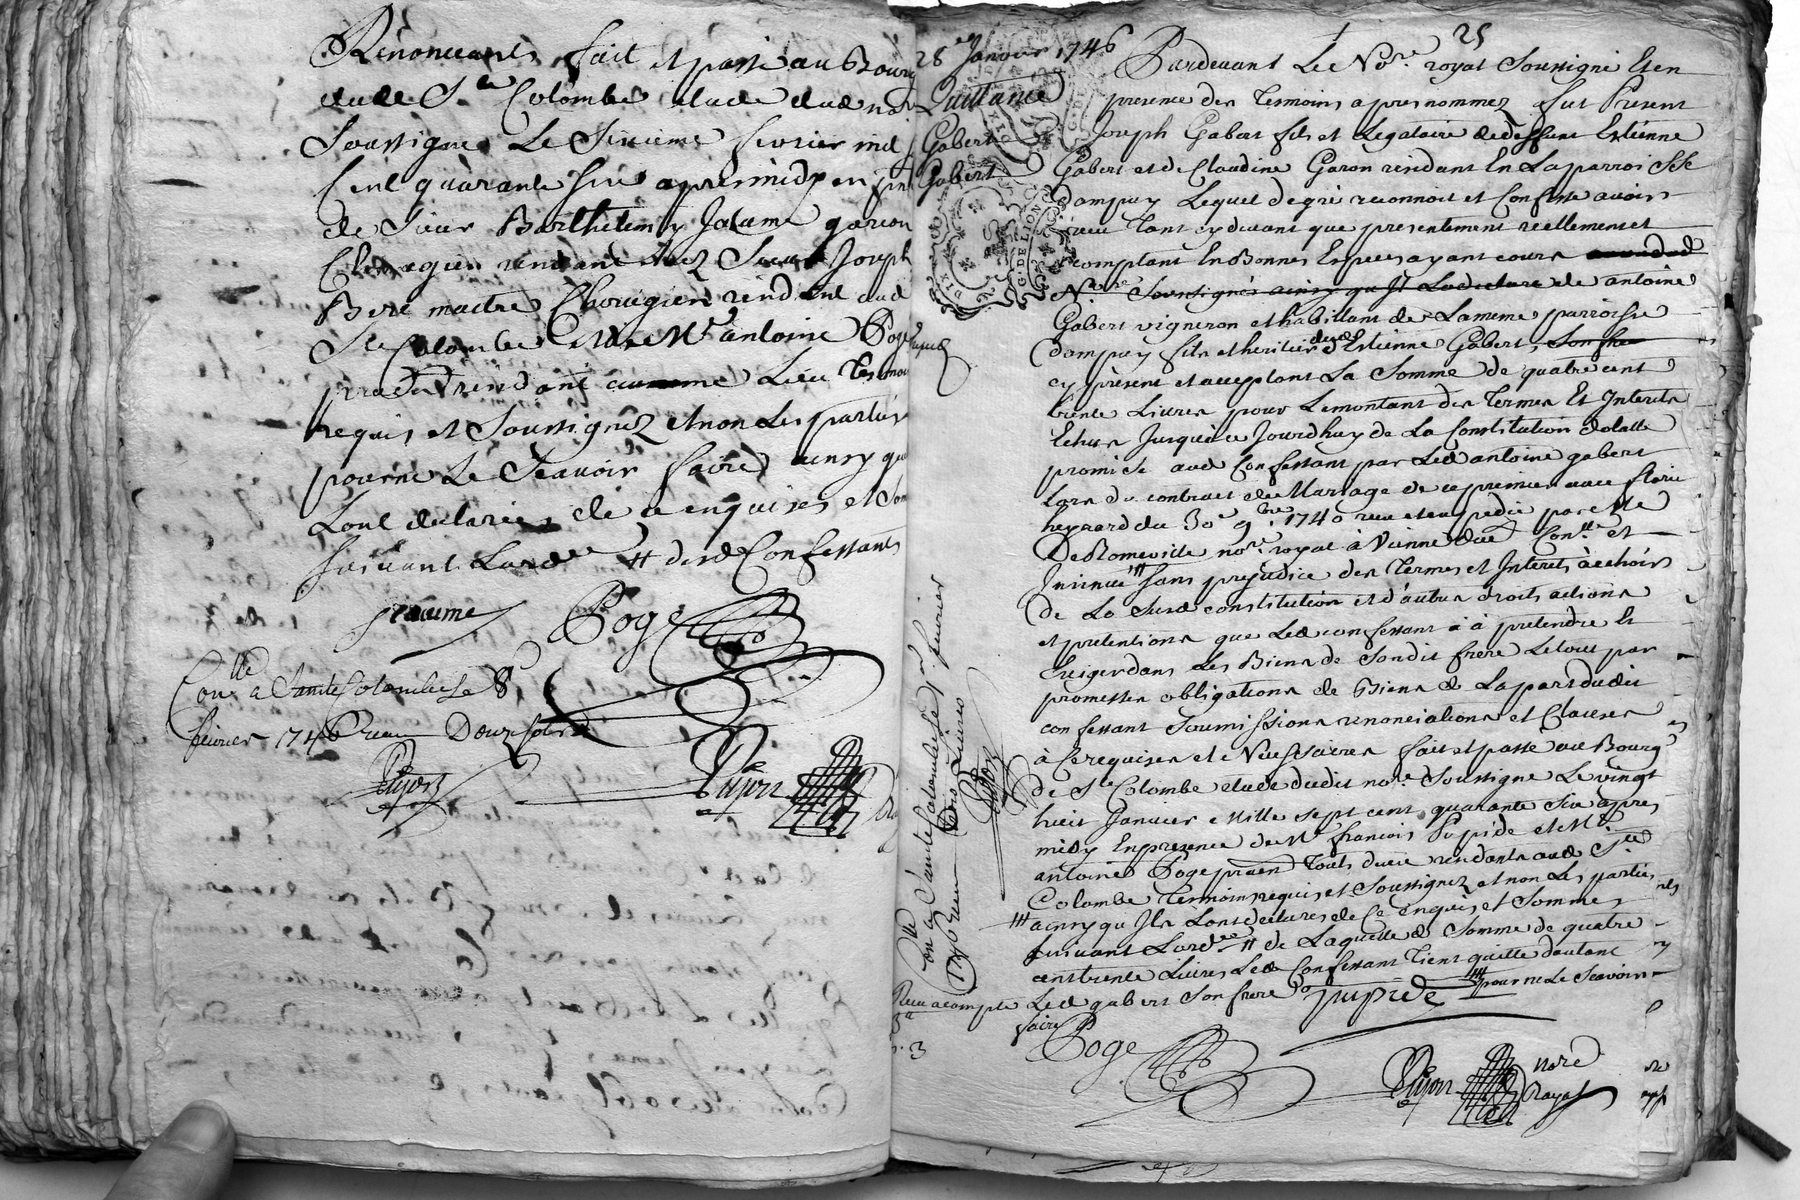 Renoncians fait et passé au Bourg
dud S.te Colombe etude dud no.re
Soussigné Le Sixieme fevrier mil
Cent quarante six apres midy en pre
de Sieur Barthelemy Jacume garcon
Chirurgien rendant chez Sieur Joseph
maitre Chirurgien rendant aud
S.te Colombe et de M.e antoine Poge
praticien rendant au meme Lieu Tesmoins
requis et Soussignéz et non Les parties
pour ne Le Scavoir faire ainsy que
Lont declarée de ce enquises et Som
suivant Lord.ce # desd Confessants
Jacume Poge
Con.lle a Sainte Colombe Le 8
fevrier 1746 receu Douze sols
Pujon Pujon
25
28.e Janvier 1746
Quittance
Gabert
Gabert
G. DE LION
Pardevant Le No.re royal Soussigné Et en
presence des Temoins apres nommez fut Present
Joseph Gabert fils et Legataire de deffunt Estienne
Gabert et de Claudine Garon rendant En La parroisse
dampuy Lequel de gré reconnoit et Confesse avoir
receu Tant cy devant que presentement reellement et
comptant En Bonnes Especes ayant cours
No.re Soussignés ainsy qu Il La declare de antoine
Gabert vigneron et habittant de La meme parroisse
dampuy fils et heritier dud Estienne Gabert, Son frere
cy present et acceptant La Somme de quatre cent
trente Livres pour Le montant des Termes Et Interets
Echus Jusqu'a ce Jourdhuy de La Constitution dotalle
promise aud Confessant par Led antoine gabert
Lors du contract de Mariage de ce premier avec
heyrard du 30.e 9.bre 1740 receu et expedié par Me
De Romeville no.re royal à Vienne dud Con.lle et
Insinué # sans prejudice des Termes et Interets à echoir
de La Susd constitution et d'autres droits actions
et pretentions que Led confessant a à pretendre Et
Exiger dans Les Biens de Son dit frere Le tout par
promesses obligations de Biens de La part dudit
confessant Soumissions renonciations et Clauses
à Ce requises et Necessaires fait et passé au Bourg
de S.te Colombe etude dudit no.re Soussigné Le vingt
huit Janvier Mille sept cent quarante Six apres
midy En presence de M.e françois Jupide et M.e
antoine Poge praen Touts deux rendants aud S.te
Colombe Temoins requis et Soussignez et non Les parties
ainsy qu Ils Lont declarés de Ce enquis et Sommés
suivant Lord.ce # de Laquelle d Somme de quatre
cent trente Livres Led Confessant Tient quitte d'autant
Led gabert Son frere Jupide pour ne Le Scavoir
faire
Poge Pujon no.re
Royal
Con.lle a Sainte Colombe le p.er fevrier
1746 receu Trois Livres
Pujon
Receu acompte
3